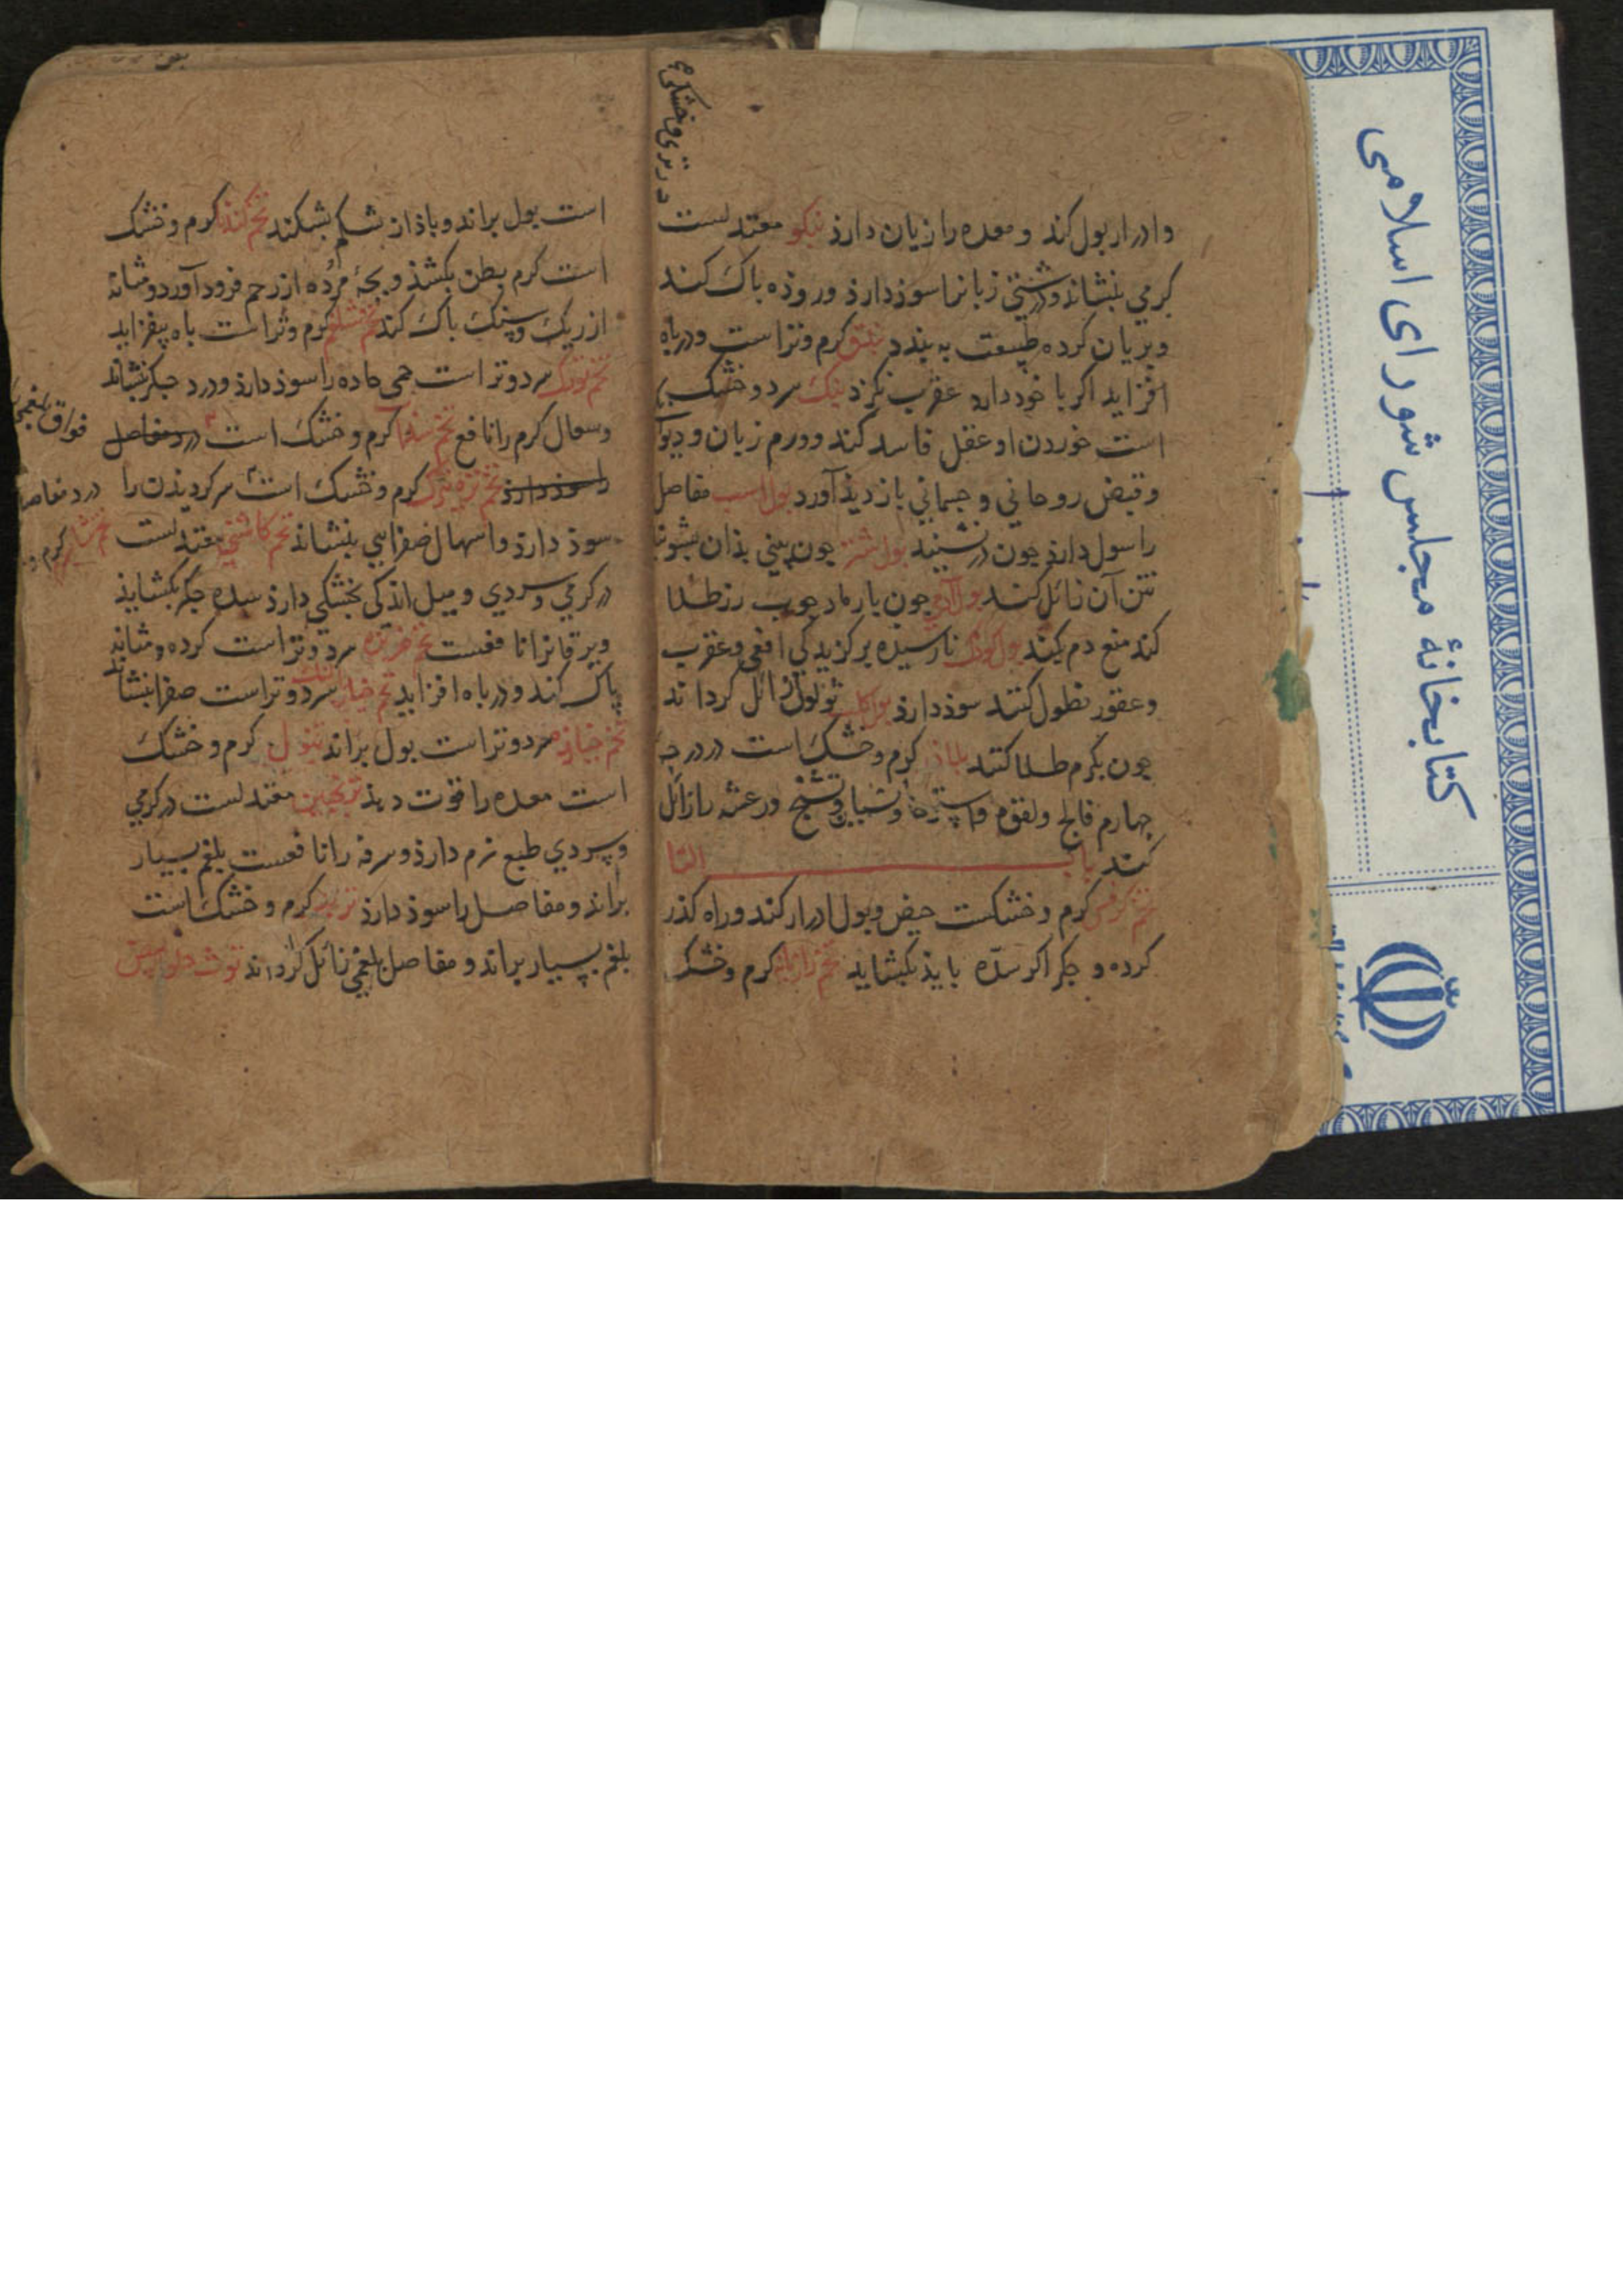 در تری و خشکی
وادرار بول کند و معده را زیان دارذ بنکو معتدلست
کرمی بنشاند و درشتی زبانرا سوذ دارذ و روذه باک کند
و بریان کرده طبیعت به بندد بندق کرم و تر است و در باه
افزاید اکر با خود دارد عقرب نکزد بنک سرد و خشک
است خوردن او عقل فاسد کند و ورم زبان و
و قبض روحانی و جسمانی بازدیذ آورد بول اسب مفاصل
را سوذ دارذ جون در نشیند بول شتر جون بینی بذان بشویند
نتن آن زائل کند بول آدمی جون با رماد جوب رز طلا
کند منع دم کند بول کوذک نارسیذه بر کزیدکی افعی و عقرب
و عقور نطول کنند سوذ دارذ بول کلب ثولول زائل کرداند
جون بکرم طلا کنند بلاذر کرم و خشک است در درجه
جهارم فالج ولقوه و استرخا و نسیان و تشنج و رعشه را زائل
کند باب التا
تخم کرفس کرم و خشکست حیض و بول ادرار کند و راه کذر
کرده و جکر اکر سدّه بایذ بکشاید تخم رازیانه کرم و خشک
است بول براند و باذ از شکم بشکند تخم کندنا کرم و خشک
است کرم بطن بکشذ و بجهٔ مرده از رحم فرود آورد و مثانه
از ریک و سنک باک کند تخم شلغم کرم و تر است باه بیفزاید
تخم تورک سرد و تر است حمی حاده را سوذ دارذ و درد جکر بنشاند
و سعال کرم را نافع تخم کرم و خشک است درد مفاصل
را سوذ دارذ تخم تره تیزک کرم و خشک است سر کردیذن را
سوذ دارذ و اسهال صفرایی بنشاند تخم کاسنی معتدلست
در کرمی و سردی و میل اندکی بخشکی دارذ سده جکر بکشایذ
و یرقانرا نافعست تخم خربزه سرد و تر است کرده و مثانه
پاک کند و در باه افزاید تخم خیار بالنک سرد و تر است صفرا بنشاند
تخم خیازه سرد و تر است بول براند تنبول کرم و خشک
است معده را قوت دهذ ترنجبین معتدلست در کرمی
و سردی طبع نرم دارذ و سرفه را نافعست بلغم بسیار
براند و مفاصل را سوذ دارذ تربد کرم و خشک است
بلغم بسیار براند و مفاصل بلغمی زائل کرداند توث حلو سبتش
فواق بلغمی
درد مفاصل
کرم و
کتابخانهٔ مجلس شورای اسلامی